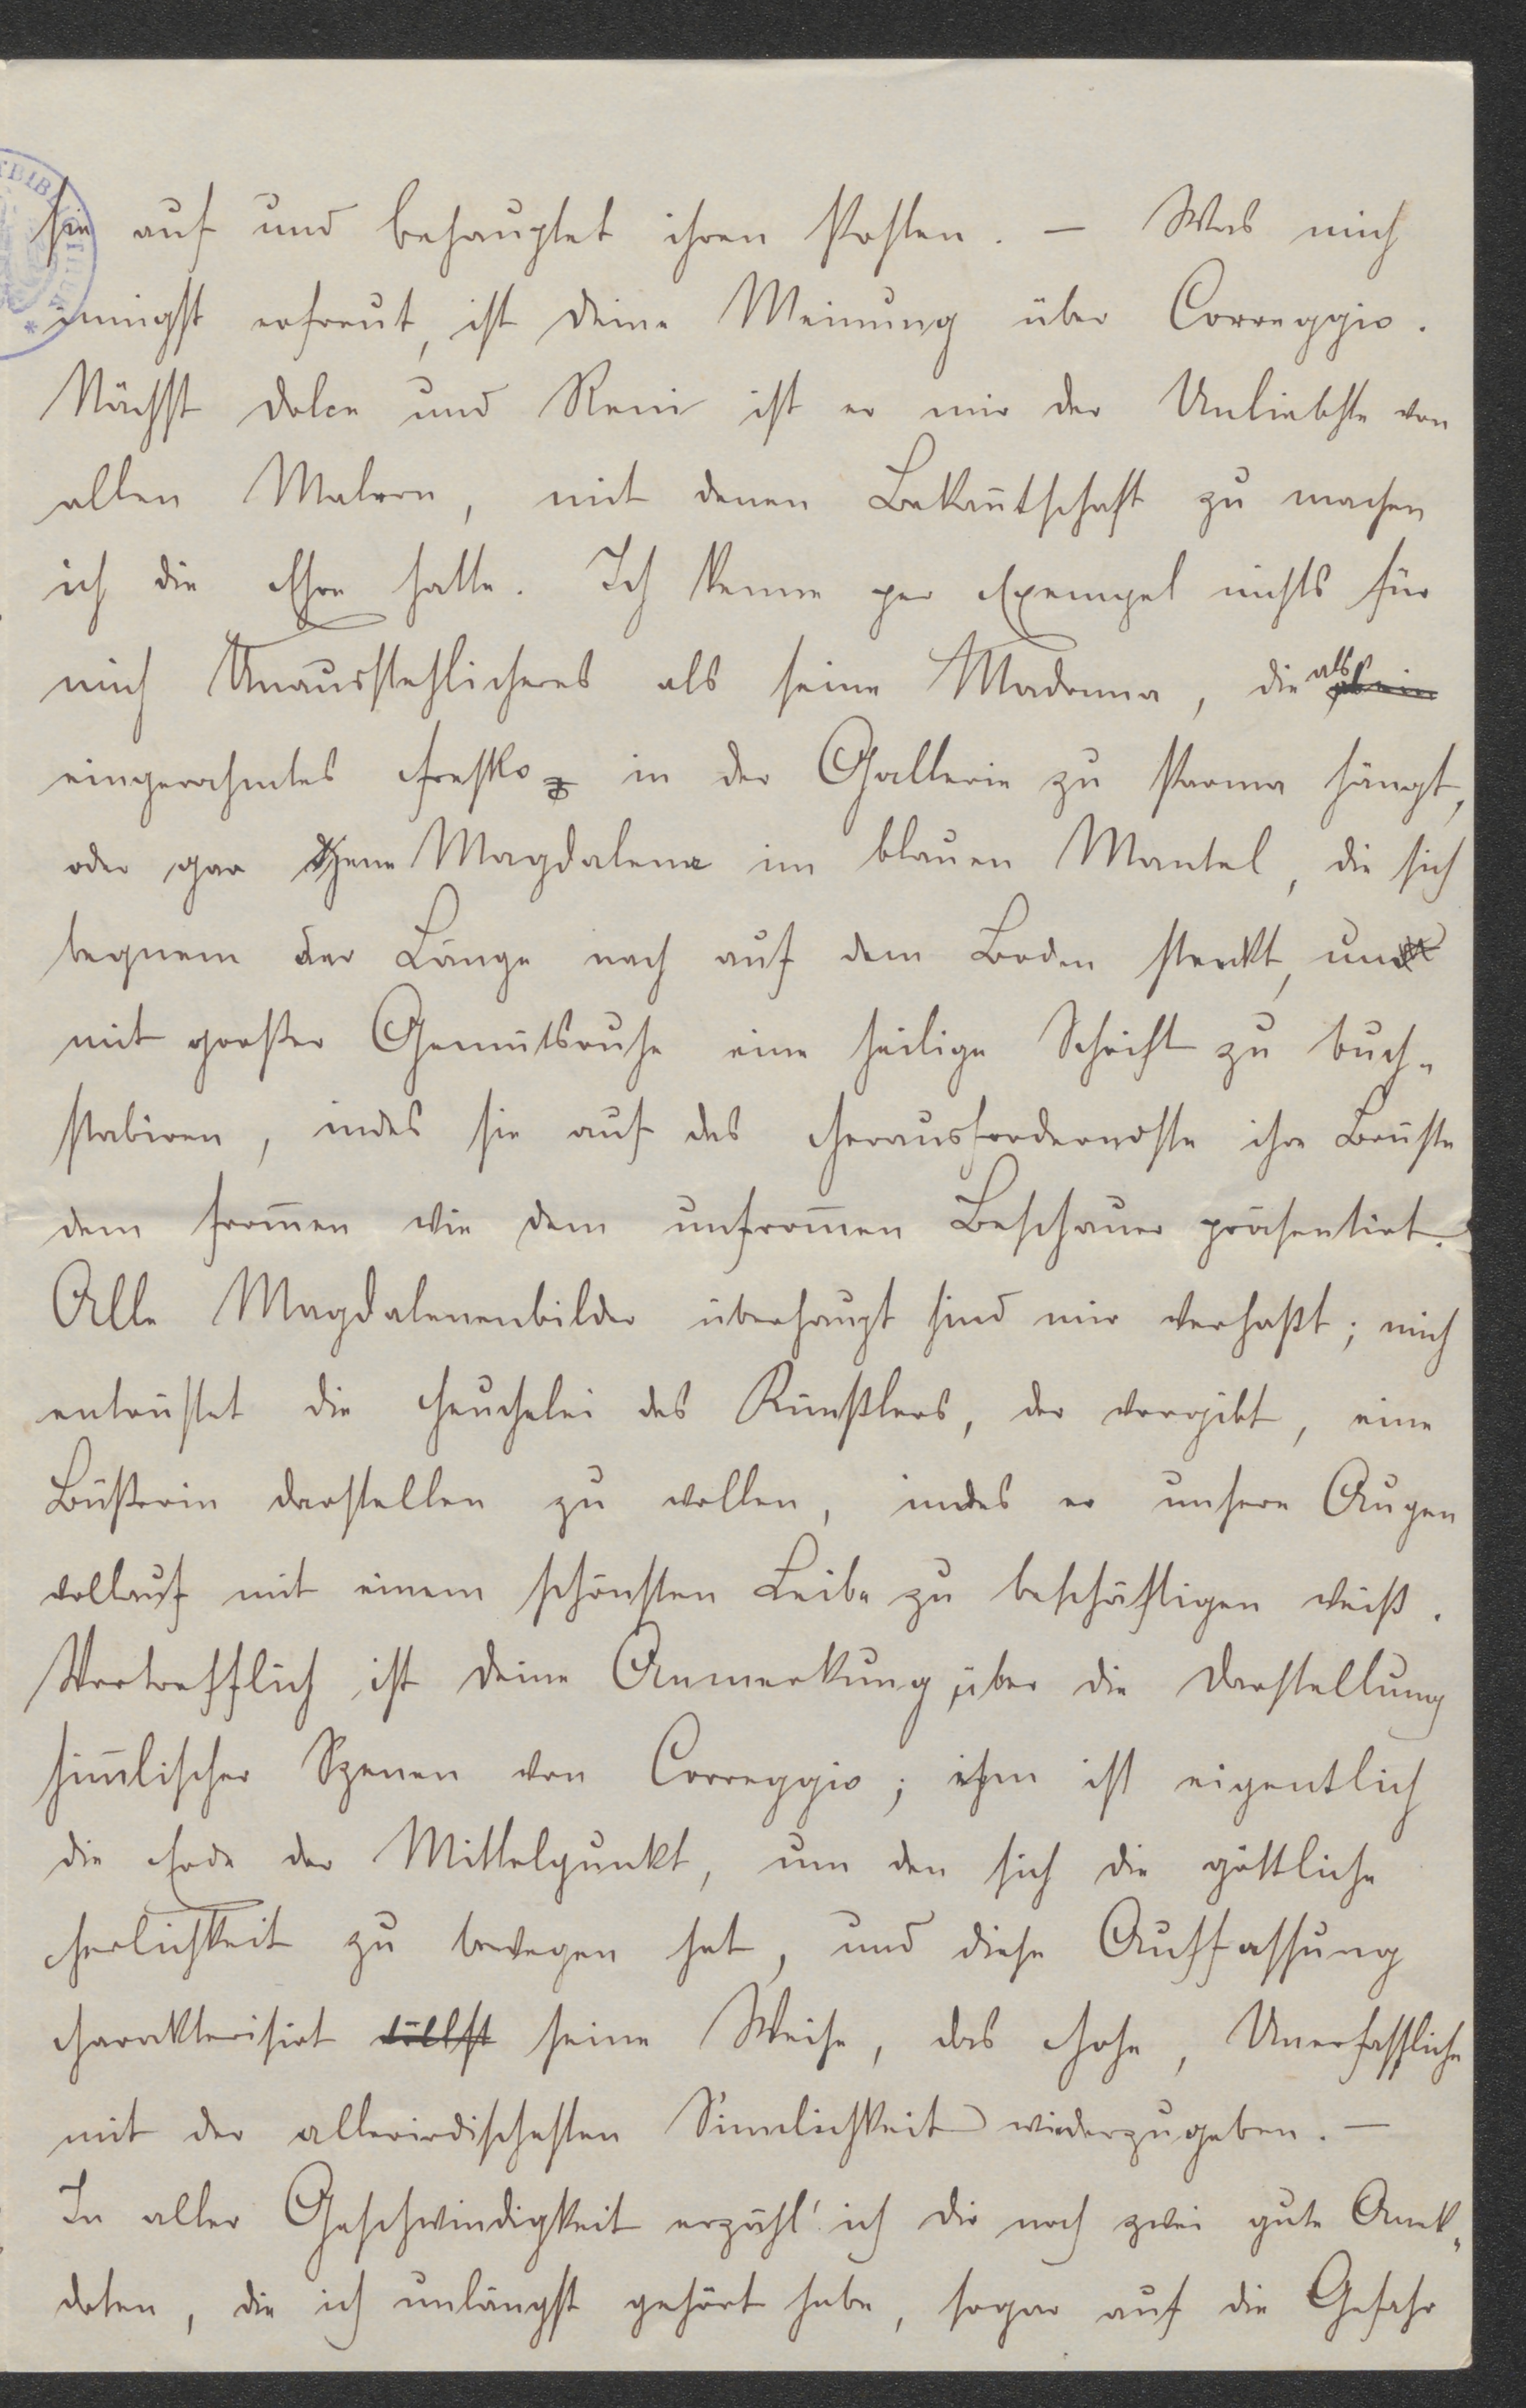 sie auf und behauptet ihren Posten. — Was mich
innigst erfreut, ist deine Meinung über Correggio.
Nächst Dolce und Reni ist er mir der Unliebste von
allen Malern, mit denen Bekan̄tschaft zu machen
ich die Ehre hatte. Ich kenne per Exempel nichts für
mich Unausstehlicheres als seine Madonna, die als
eingerahmtes Fresko in der Gallerie zu Parma hängt,
oder gar jene Magdalena im blauen Mantel, die sich
bequem der Länge nach auf dem Boden streckt, um
mit großer Gemütsruhe eine heilige Schrift zu buch-
stabiren, indes sie auf das Herausforderndste ihre Brüste
dem from̄en wie dem unfrom̄en Beschauer präsentirt.
Alle Magdalenenbilder überhaupt sind mir verhaßt; mich
entrüstet die Heuchelei des Künstlers, der vorgibt, eine
Büßerin darstellen zu wollen, indes er unsere Augen
vollauf mit einem schönsten Leibe zu beschäftigen weiß.
Vortrefflich ist deine Anmerkung über die Darstellung
him̄lischer Szenen von Correggio; ihm ist eigentlich
die Erde der Mittelpunkt, um den sich die göttliche
Herlichkeit zu bewegen hat, und diese Auffassung
charakterisirt seine Weise, das Hohe, Unerfassliche
mit der allerirdischesten Sinnlichkeit wiederzugeben. —
In aller Geschwindigkeit erzähl' ich dir noch zwei gute Anek-
doten, die ich unlängst gehört habe, sogar auf die Gefahr